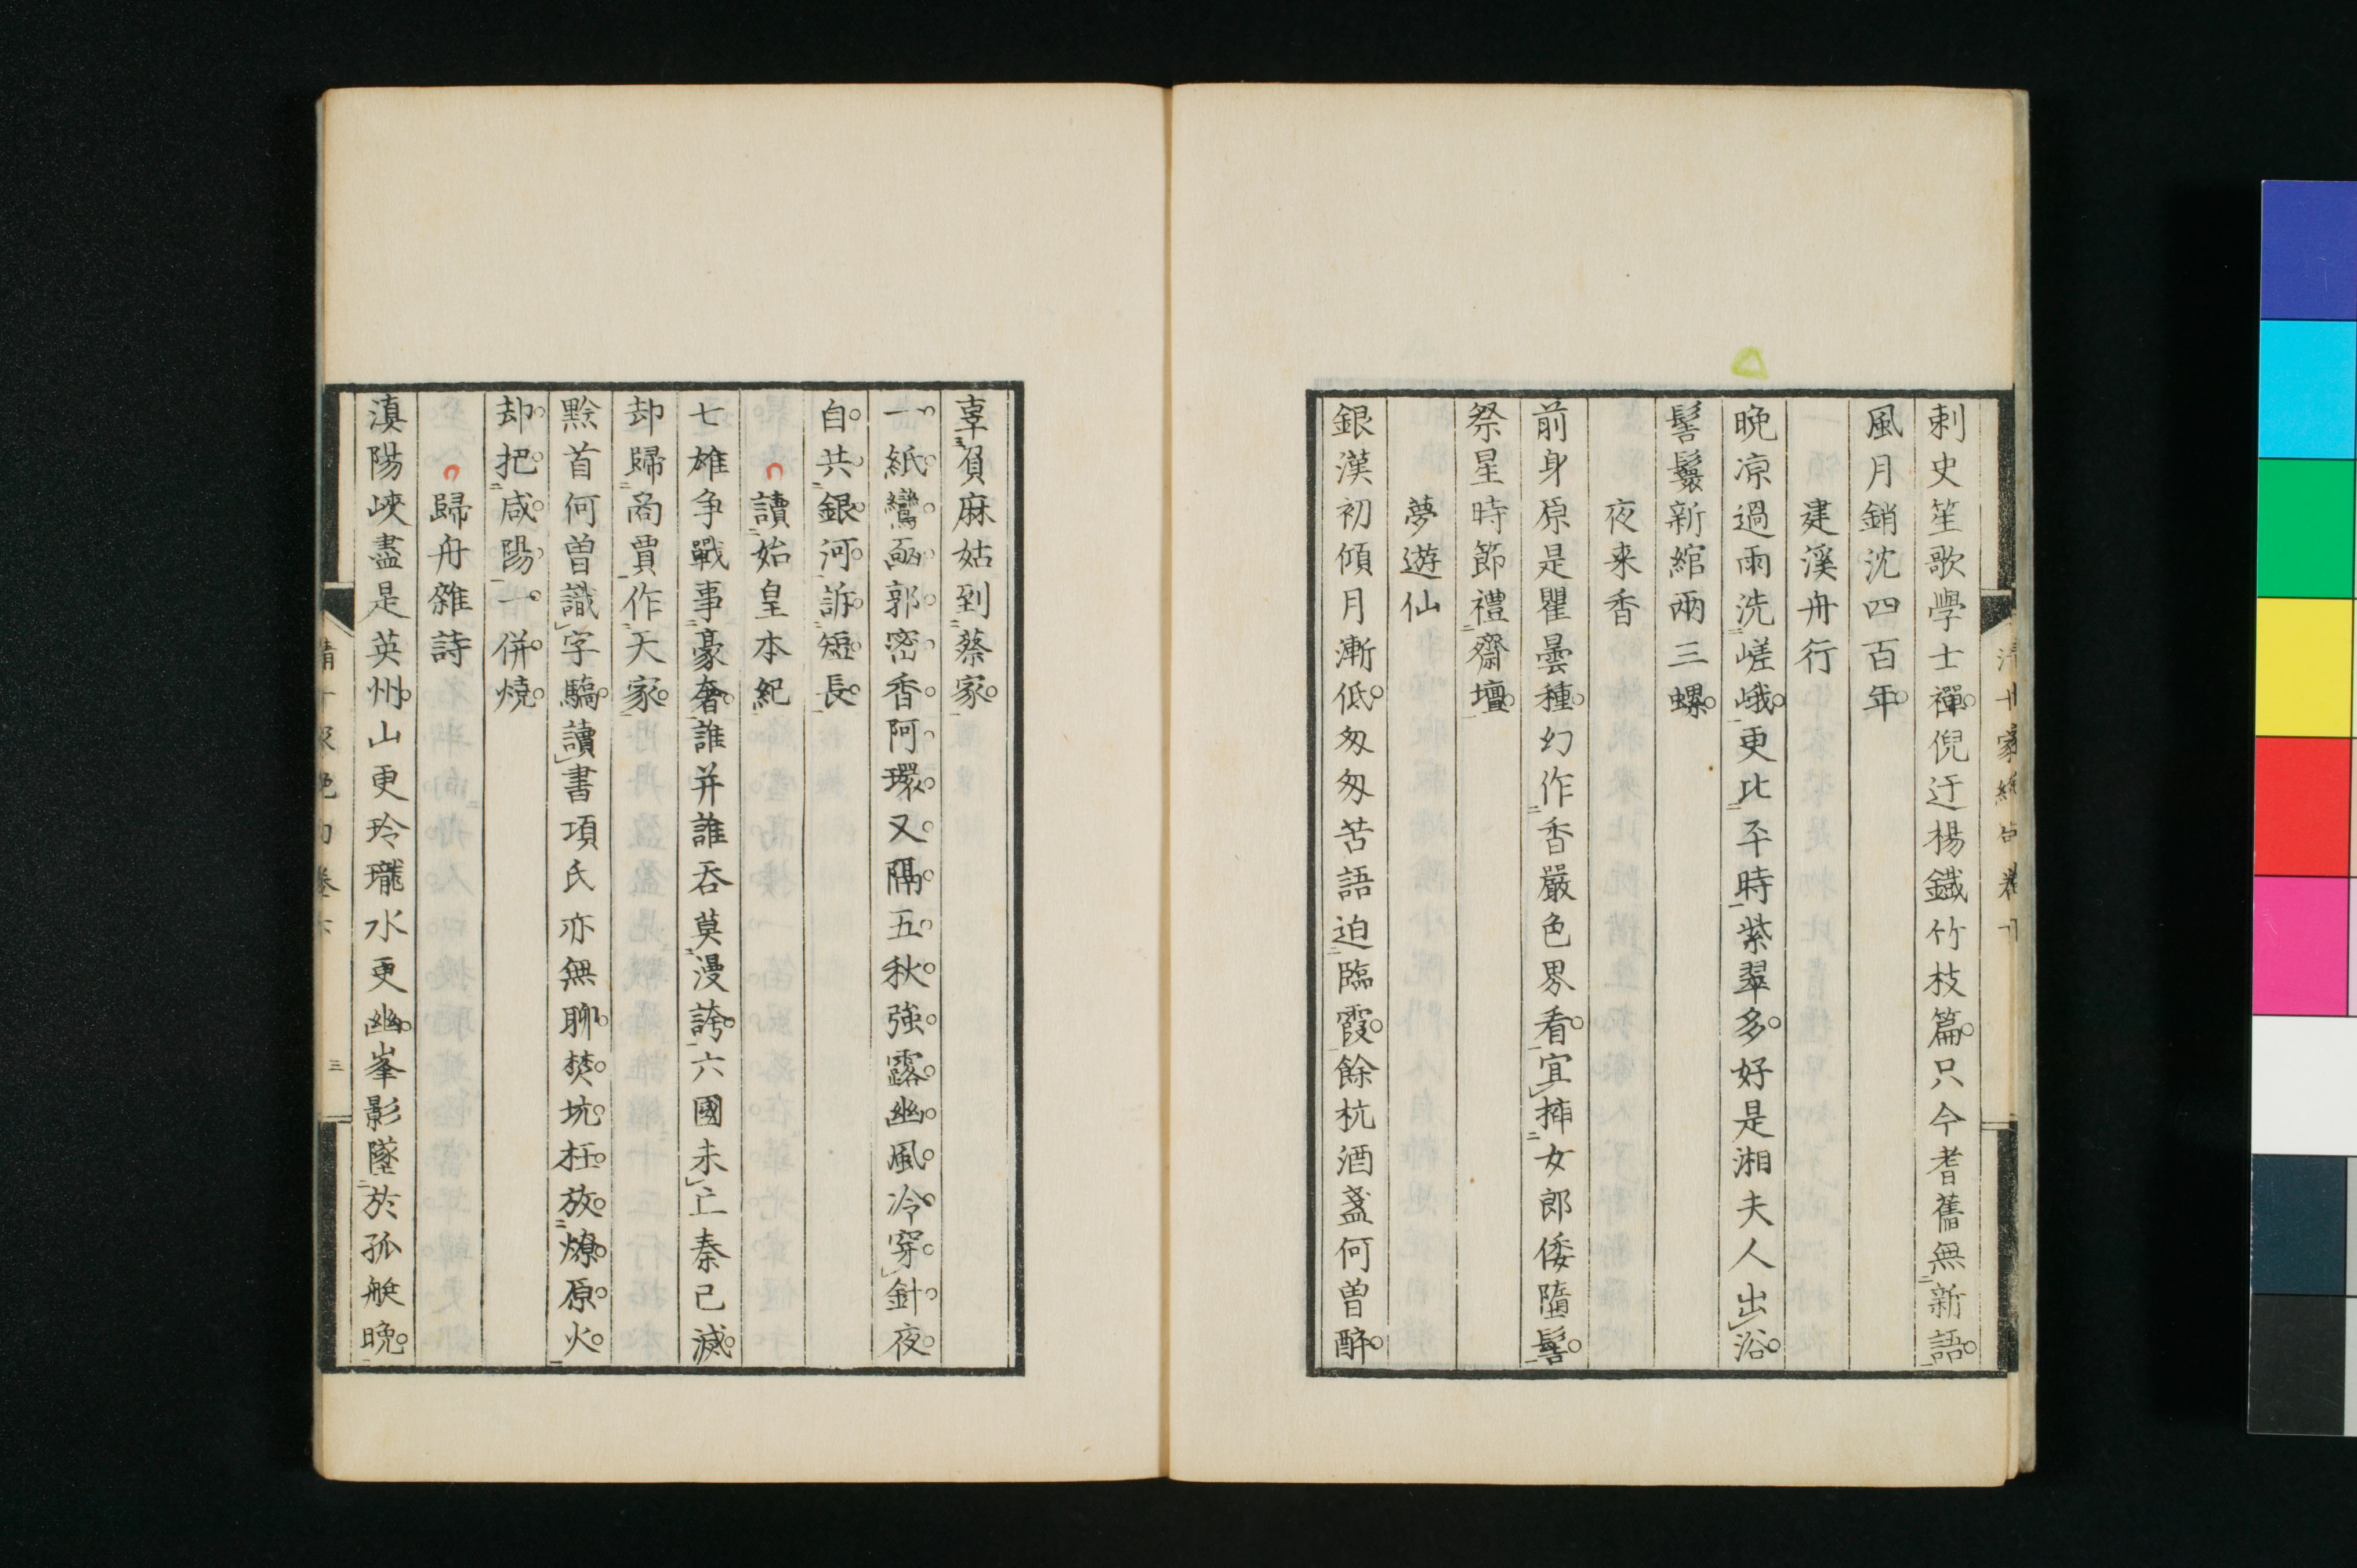 刺史笙歌學士禪倪迂楊鐵竹枝篇只今耆舊無新語
風月銷沈四百年
建溪舟行
晚凉過雨洗嵯峨更比平時紫翠多好是湘夫人出浴
髻鬟新綰兩三螺
夜来香
前身原是瞿曇種幻作香嚴色界看宜揷女郎倭隨髻
祭星時節禮齋壇
夢遊仙
銀漢初傾月漸低匆匆苦語迫臨霞餘杭酒盞何曽醉
辜負麻姑到蔡家
一紙鸞郭密香阿環又隔五秋強露幽風冷穿針夜
自共銀河訴短長
讀始皇本紀
七雄争戰事豪奢誰并誰吞莫漫誇六國未亡秦已滅
却歸商賈作天家
黔首何曽識字驕讀書項氏亦無聊焚坑枉放燎原火
却把咸陽一併燒
歸舟雜詩
湞陽峽盡是英州山更玲瓏水更幽峯影墜於孤艇晚
三